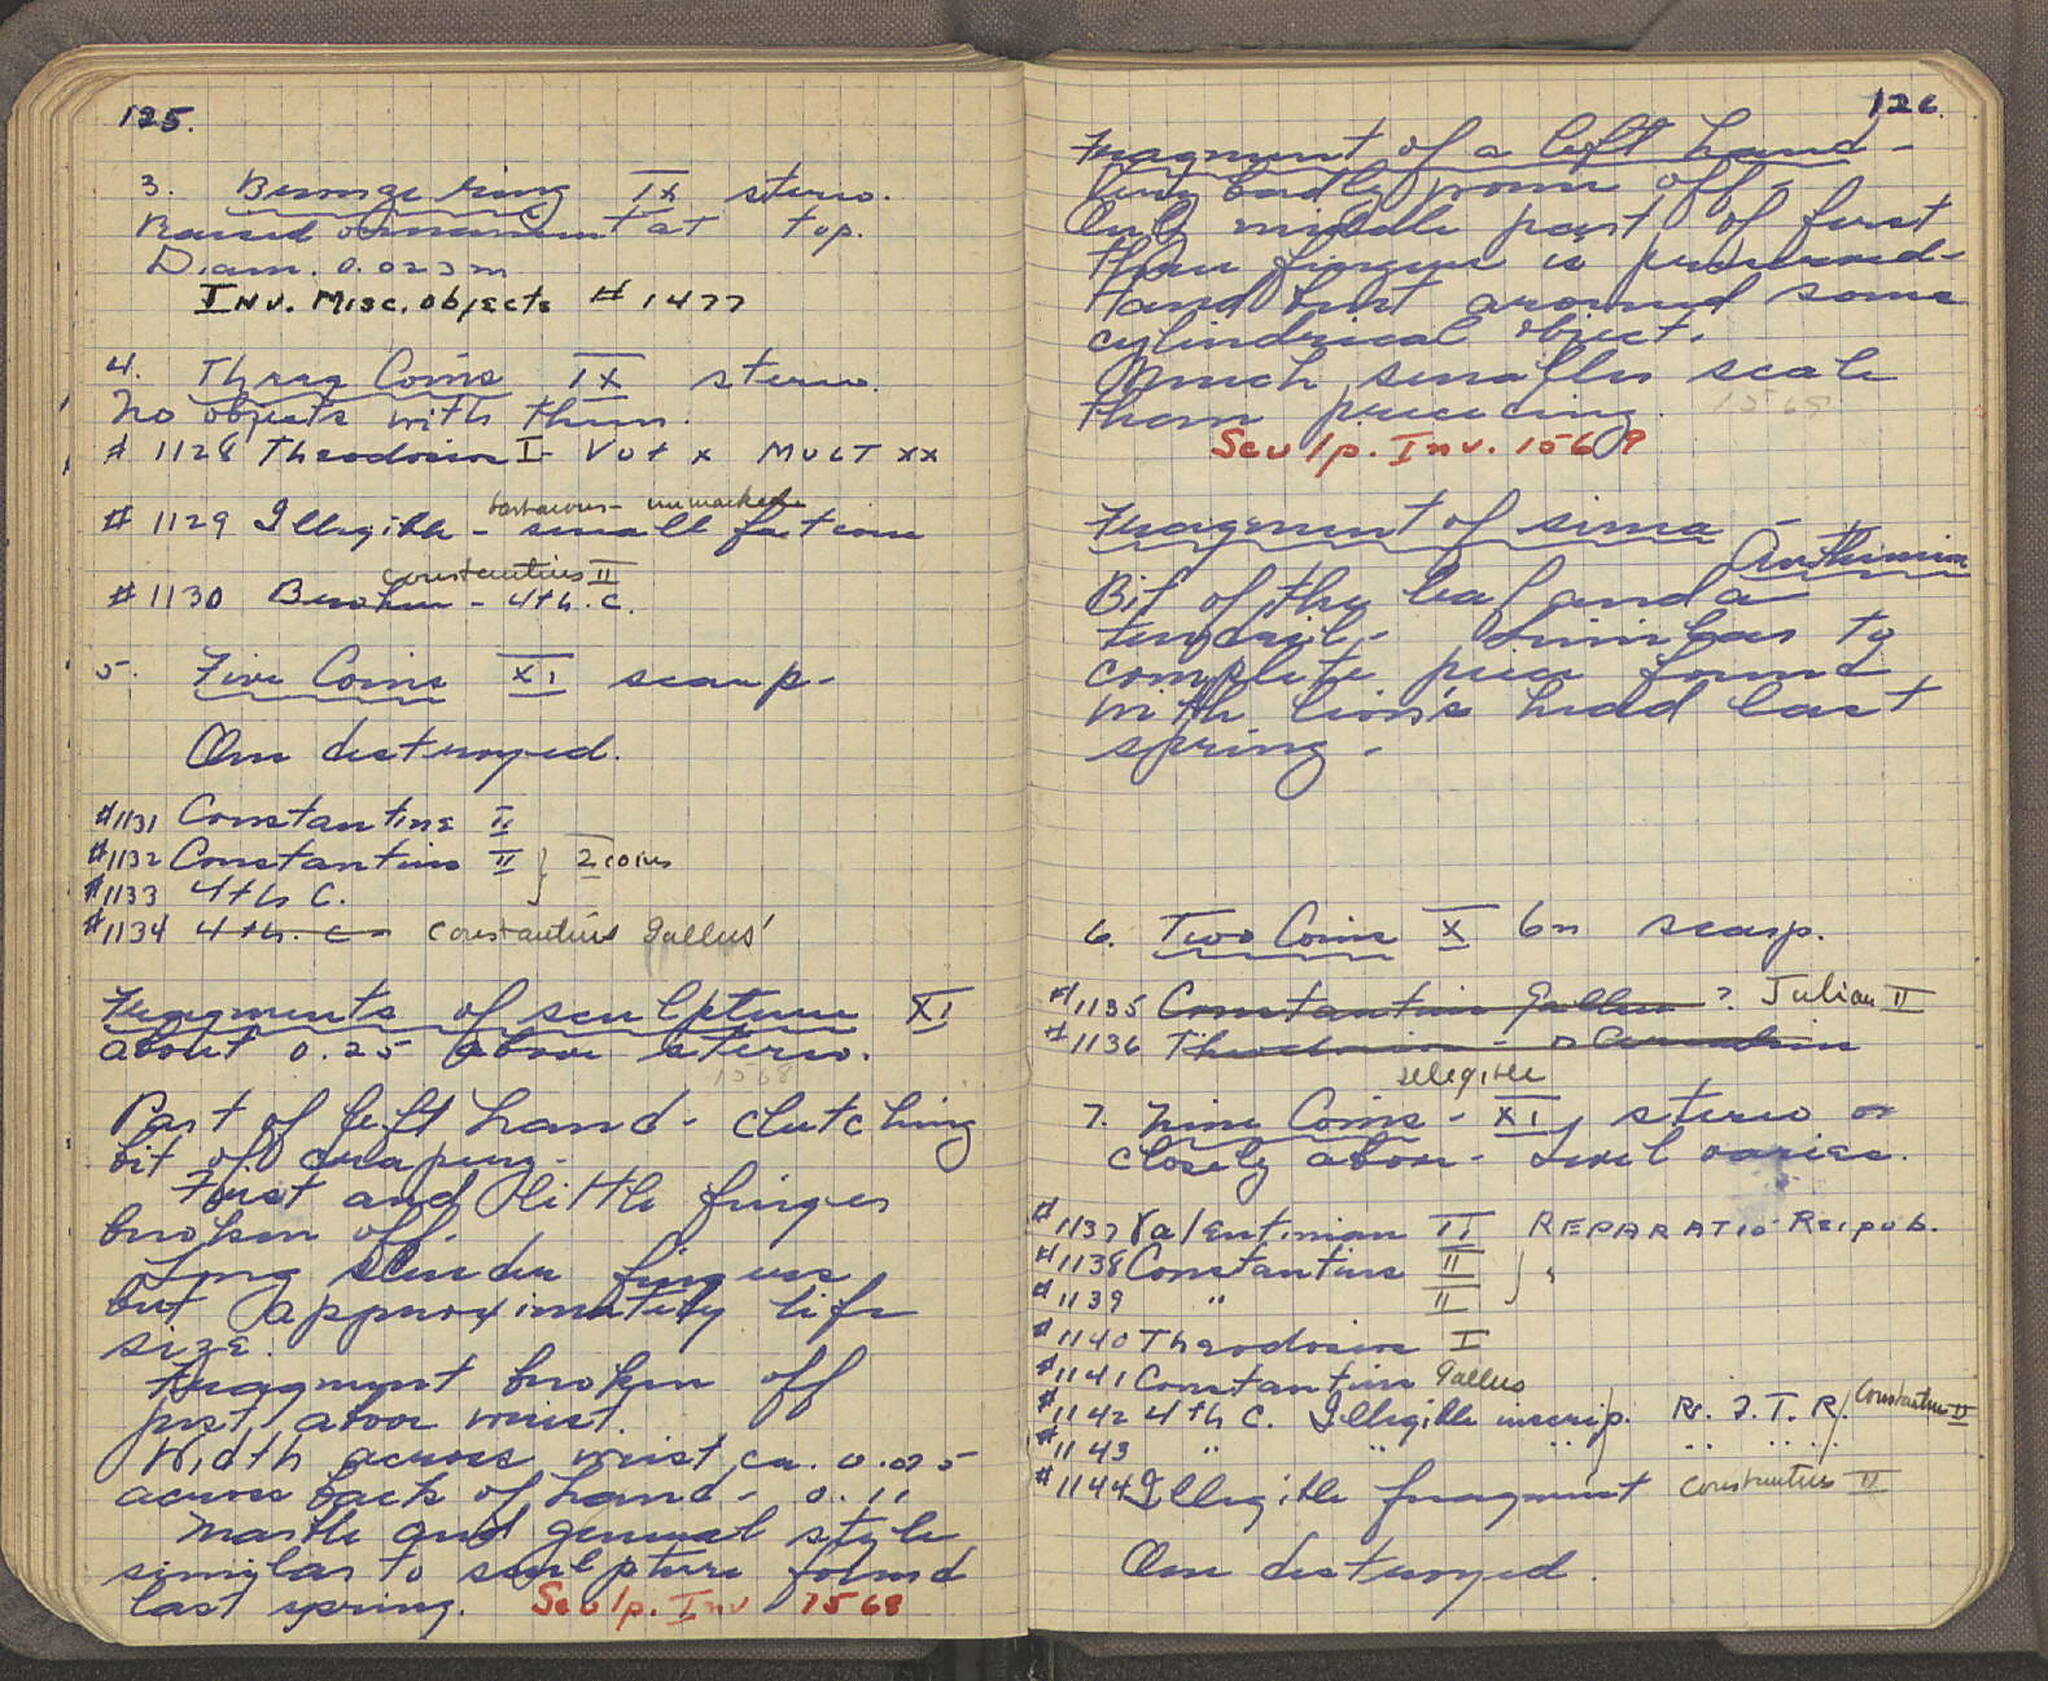 125.
3. Bronze ring IX stereo.
Raised ornament at top.
Diam. 0.023 m
Inv. Misc. Objects # 1477
4. Three Coins IX stereo.
No objects with them.
# 1128 Theodosius I - Vot X MULT XX
barbarous - unmarked
# 1129 Illegible - small fat coin
Constantius II
# 1130 Broken - 4th. C.
5. Five Coins XI scarp.
One destroyed.
#1131 Constantine II
#1132 Constantius II } 2 coins
#1133 4th C.
#1134 4th. C - Constantius Gallus
Fragments of sculpture XI
about 0.25 above stereo.
1568
Part of left hand - clutching
bit of drapery.
First and little finger
broken off.
Long slender fingers
but approximately life
size.
Fragment broken off
just above wrist.
Width across wrist, ca. 0.075
across back of hand - 0.11
Marble and general style
similar to sculpture found
last spring. Sculp. Inv 1568
126.
Fragment of a left hand -
Very badly worn off -
Only middle part of first
three fingers is preserved -
Hand bent around some
cylindrical object.
Much smaller scale
than preceding. 1569
Sculp. Inv. 1569
Fragment of sima -
Anthemion
Bit of the leaf and a
tendril - Similar to
complete piece found
with lion's head last
spring.
6. Two Coins X bn scarp.
#1135 Constantius Gallus ? Julian II
#1136 Theodosius - Arcadius
illegible
7. Nine Coins - XI, stereo or
closely above - Level varies.
#1137 Valentinian II REPARATIO Reipub.
#1138 Constantius II }
#1139 " II
#1140 Theodosius I
#1141 Constantius Gallus
#1142 4th C. Illegible inscrip. } R. F. T. R. } Constantius II
#1143 " " " " " "
#1144 Illegible fragment Constantius II
One destroyed.